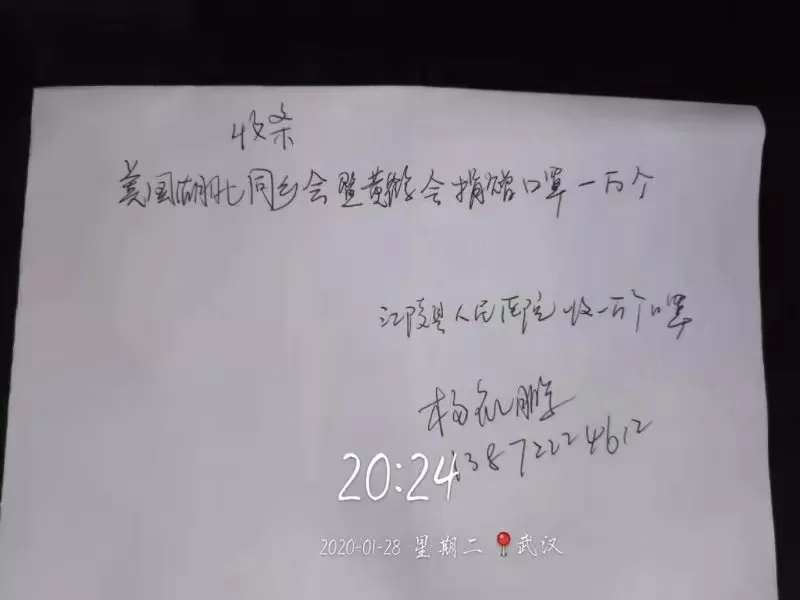 收条
美国湖北同乡会暨黄鹤会捐赠口罩一万个
江陵县人民医院收一万个口罩
杨 鹏
13872224612
20:24
2020-01-28 星期二 武汉